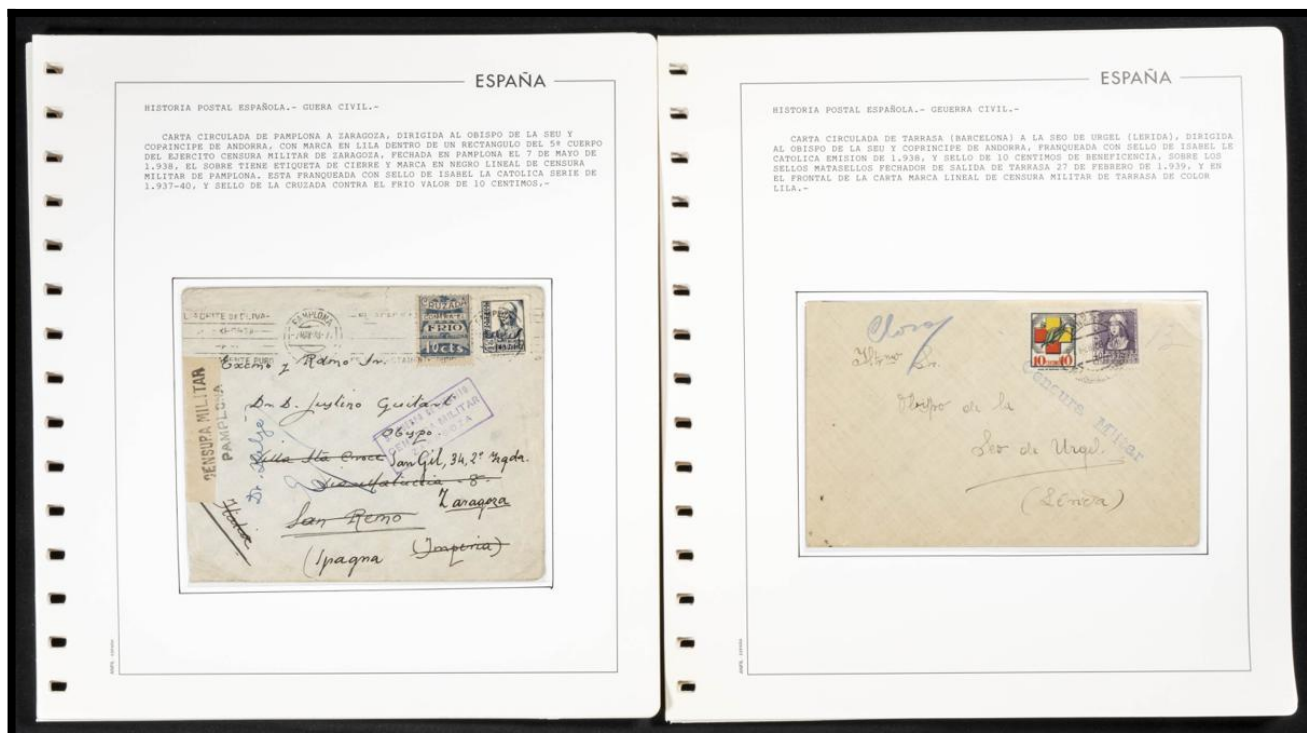 ESPAÑA
HISTORIA POSTAL ESPAÑOLA.- GUERA CIVIL.-
CARTA CIRCULADA DE PAMPLONA A ZARAGOZA, DIRIGIDA AL OBISPO DE LA SEU Y
COPRINCIPE DE ANDORRA, CON MARCA EN LILA DENTRO DE UN RECTANGULO DEL 5º CUERPO
DEL EJERCITO CENSURA MILITAR DE ZARAGOZA, FECHADA EN PAMPLONA EL 7 DE MAYO DE
1.938, EL SOBRE TIENE ETIQUETA DE CIERRE Y MARCA EN NEGRO LINEAL DE CENSURA
MILITAR DE PAMPLONA. ESTA FRANQUEADA CON SELLO DE ISABEL LA CATOLICA SERIE DE
1.937-40, Y SELLO DE LA CRUZADA CONTRA EL FRIO VALOR DE 10 CENTIMOS.-
PAMPLONA
CRUZADA
CONTRA EL
FRIO
10 cts.
CENSURA MILITAR
PAMPLONA
Excmo y Rdmo Sr.
Dr. D. Justino Guitart
Obispo
CENSURA MILITAR
ZARAGOZA
Villa Sta Croce San Gil, 34, 2º Izqda.
Zaragoza
San Remo
Italia
(Spagna (Imperia)
ESPAÑA
HISTORIA POSTAL ESPAÑOLA.- GEUERRA CIVIL.-
CARTA CIRCULADA DE TARRASA (BARCELONA) A LA SEO DE URGEL (LERIDA), DIRIGIDA
AL OBISPO DE LA SEU Y COPRINCIPE DE ANDORRA, FRANQUEADA CON SELLO DE ISABEL LE
CATOLICA EMISION DE 1.938, Y SELLO DE 10 CENTIMOS DE BENEFICENCIA, SOBRE LOS
SELLOS MATASELLOS FECHADOR DE SALIDA DE TARRASA 27 DE FEBRERO DE 1.939, Y EN
EL FRONTAL DE LA CARTA MARCA LINEAL DE CENSURA MILITAR DE TARRASA DE COLOR
LILA.-
10 10
Iltmo Sr.
Censura Militar
Obispo de la
Seo de Urgel
(Lérida)